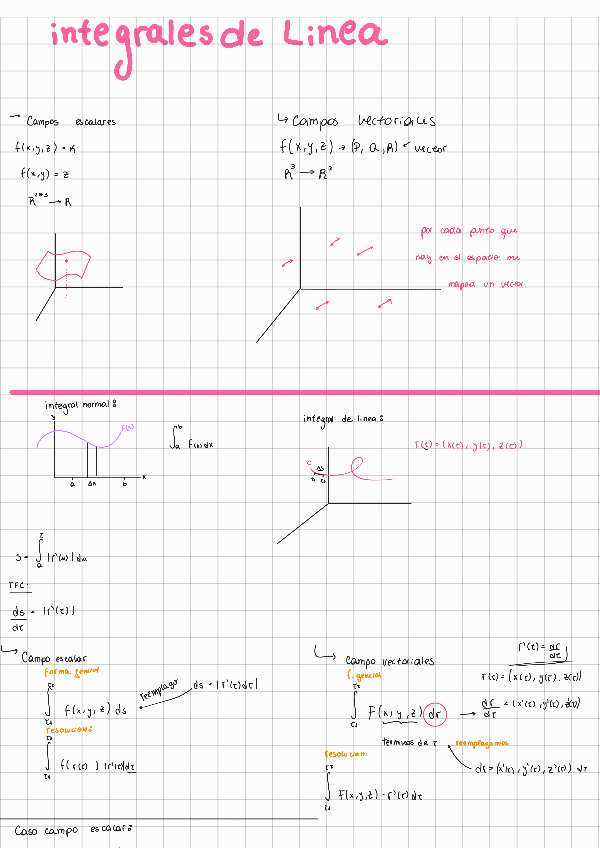 integrales de Linea
→ Campos escalares
f(x,y,z) = R
f(x,y) = z
R²˒³ → R
↳ Campos vectoriales
f(x,y,z) → (P, Q, R) ← vector
R³ → R³
por cada punto que
hay en el espacio me
mapea un vector.
integral normal:
y
f(x)
a Δx b x
∫ₐᵇ f(x) dx
integral de linea:
C
Δs
r(t) = (x(t), y(t), z(t))
S = ∫ₐᵗ |r'(u)| du
TFC:
ds/dt = |r'(t)|
↳ Campo escalar
Forma general
∫ f(x,y,z) ds
reemplazo
ds = |r'(t) dt|
resolucion:
∫ f(r(t)) |r'(t)| dt
↳ Campo vectoriales
f. general
∫ F(x,y,z) dr
terminos de t
r'(t) = dr/dt
r(t) = (x(t), y(t), z(t))
→ dr/dt = (x'(t), y'(t), z'(t))
reemplazamos
dr = (x'(t), y'(t), z'(t)) dt
Resolucion:
∫ F(x,y,z) · r'(t) dt
Caso campo escalar: